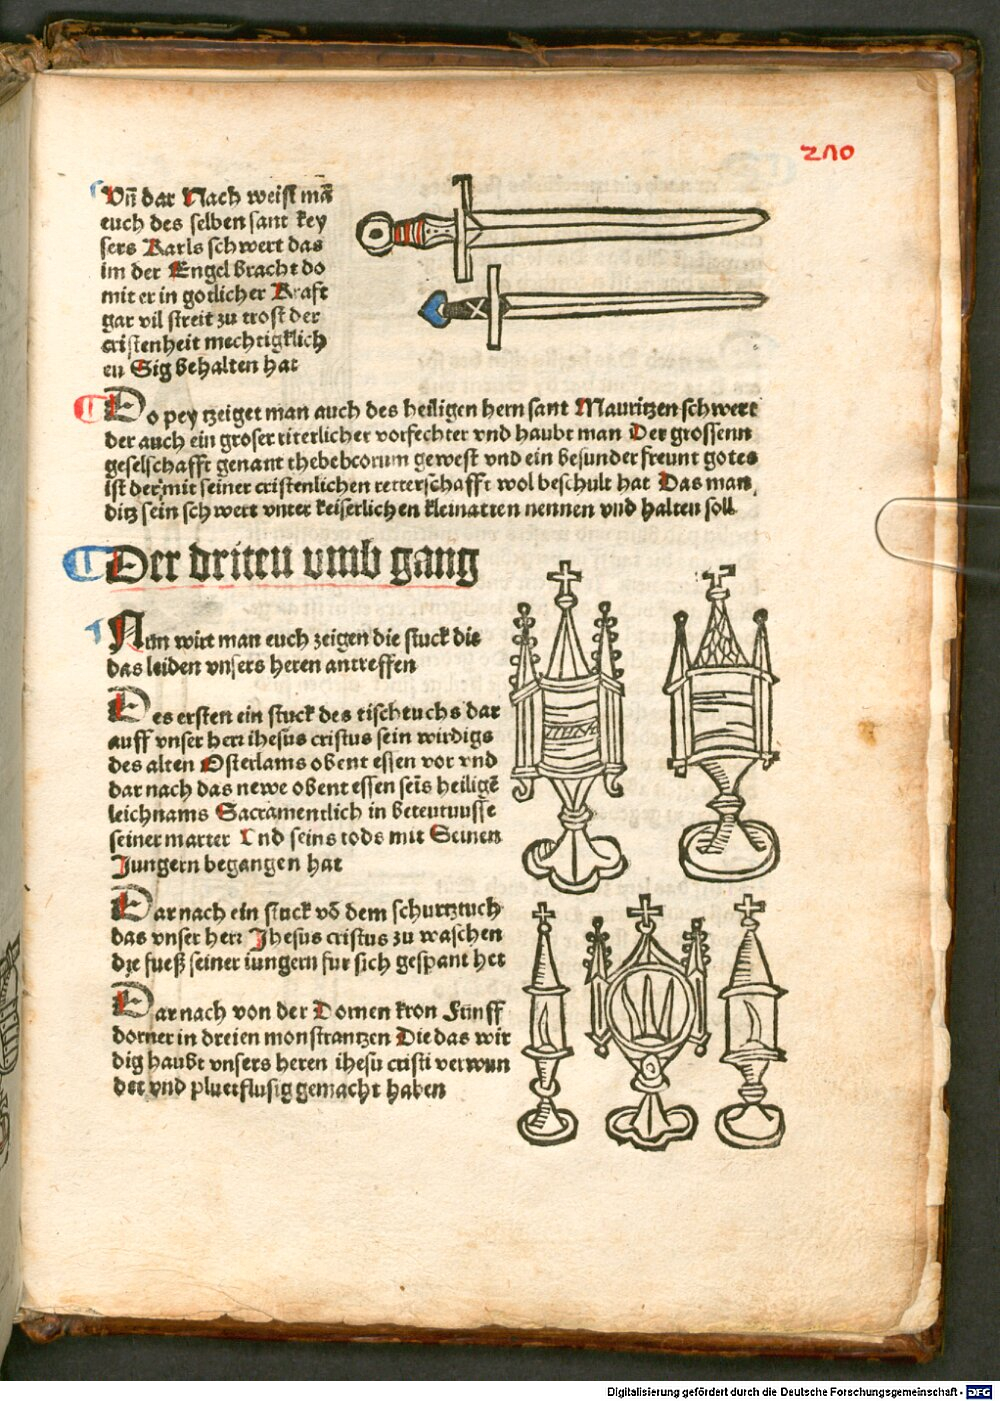 210
Vn̄ dar Nach weist mā
euch des selben sant key
sers Karls schwert das
im der Engel bracht do
mit er in gotlicher Kraft
gar vil streit zu trost der
cristenheit mechtigklich
en Sig behalten hat
Do pey tzeiget man auch des heiligen hern sant Mauritzen schwert
der auch ein groser riterlicher vorfechter vnd haubt man Der grossenn
geselschafft genant thebebcorum gewest vnd ein besunder freunt gotes
ist der mit seiner cristenlichen retterschafft wol beschult hat Das man
ditz sein schwert vnter keiserlichen kleinatten nennen vnd halten soll
Der driten vmb gang
Nun wirt man euch zeigen die stuck die
das leiden vnsers heren antreffen
Des ersten ein stuck des tischtuchs dar
auff vnser herr ihesus cristus sein wirdigs
des alten Osterlams obent essen vor vnd
dar nach das newe obent essen seīs heiligē
leichnams Sacramentlich in beteutnusse
seiner marter Vnd seins tods mit Seinen
Jungern begangen hat
Dar nach ein stuck vō dem schurtztuch
das vnser herr Jhesus cristus zu waschen
die fueß seiner iungern fur sich gespant het
Dar nach von der Dornen kron Funff
dorner in dreien monstrantzen Die das wir
dig haubt vnsers heren ihesu cristi verwun
det vnd pluetflusig gemacht haben
Digitalisierung gefördert durch die Deutsche Forschungsgemeinschaft - DFG